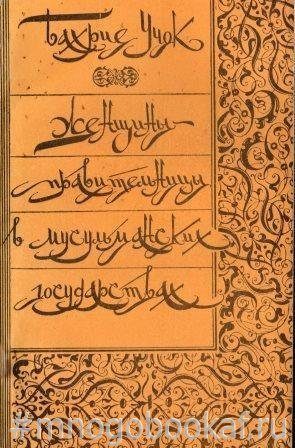 Бахрие Учок
Женщины-
правительницы
в мусульманских
государствах
#mnogobookaf.ru